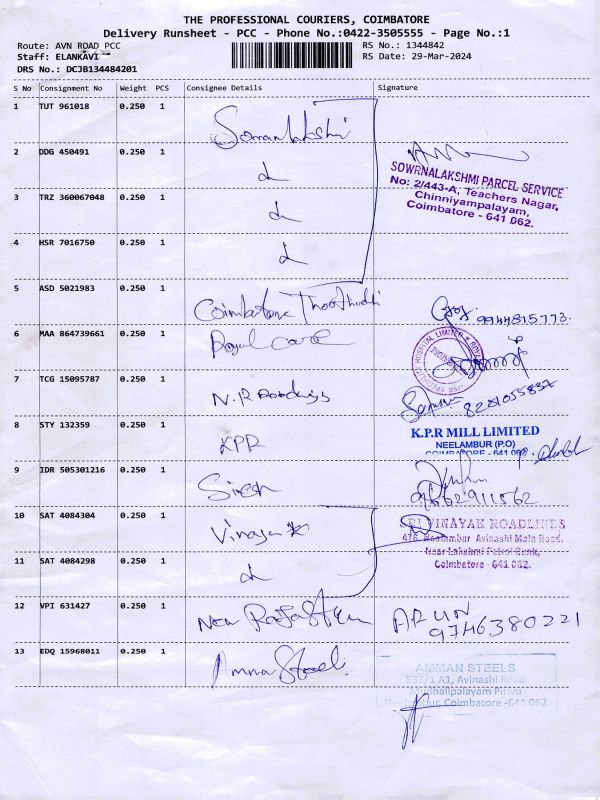 THE PROFESSIONAL COURIERS, COIMBATORE
Delivery Runsheet - PCC - Phone No.:0422-3505555 - Page No.:1
Route: AVN ROAD PCC
RS No.: 1344842
Staff: ELANKAVI
RS Date: 29-Mar-2024
DRS No.: DCJB134484201
S No Consignment No Weight PCS Consignee Details Signature
1 TUT 961018 0.250 1
2 DDG 450491 0.250 1
SOWRNALAKSHMI PARCEL SERVICE
No: 2/443-A, Teachers Nagar,
Chinniyampalayam,
Coimbatore - 641 062.
3 TRZ 360067048 0.250 1
4 HSR 7016750 0.250 1
5 ASD 5021983 0.250 1 Coimbatore
9944815773.
6 MAA 864739661 0.250 1 Royal care
7 TCG 15095787 0.250 1 N.R Roadways
8 STY 132359 0.250 1 KPR
K.P.R MILL LIMITED
NEELAMBUR (P.O)
COIMBATORE - 641 062
9 IDR 505301216 0.250 1
10 SAT 4084304 0.250 1 Vinayak
SRI VINAYAK ROADLINES
Neelambur Avinashi Main Road.
Near Lakshmi Petrol Bunk,
Coimbatore - 641 062.
11 SAT 4084298 0.250 1
12 VPI 631427 0.250 1 New Rajasthan ARUN
9746380221
13 EDQ 15968011 0.250 1 Amman Steel
AMMAN STEELS
533/1 A1, Avinashi Road
Mudhalipalayam Pirivu
Neelambur, Coimbatore -641 062